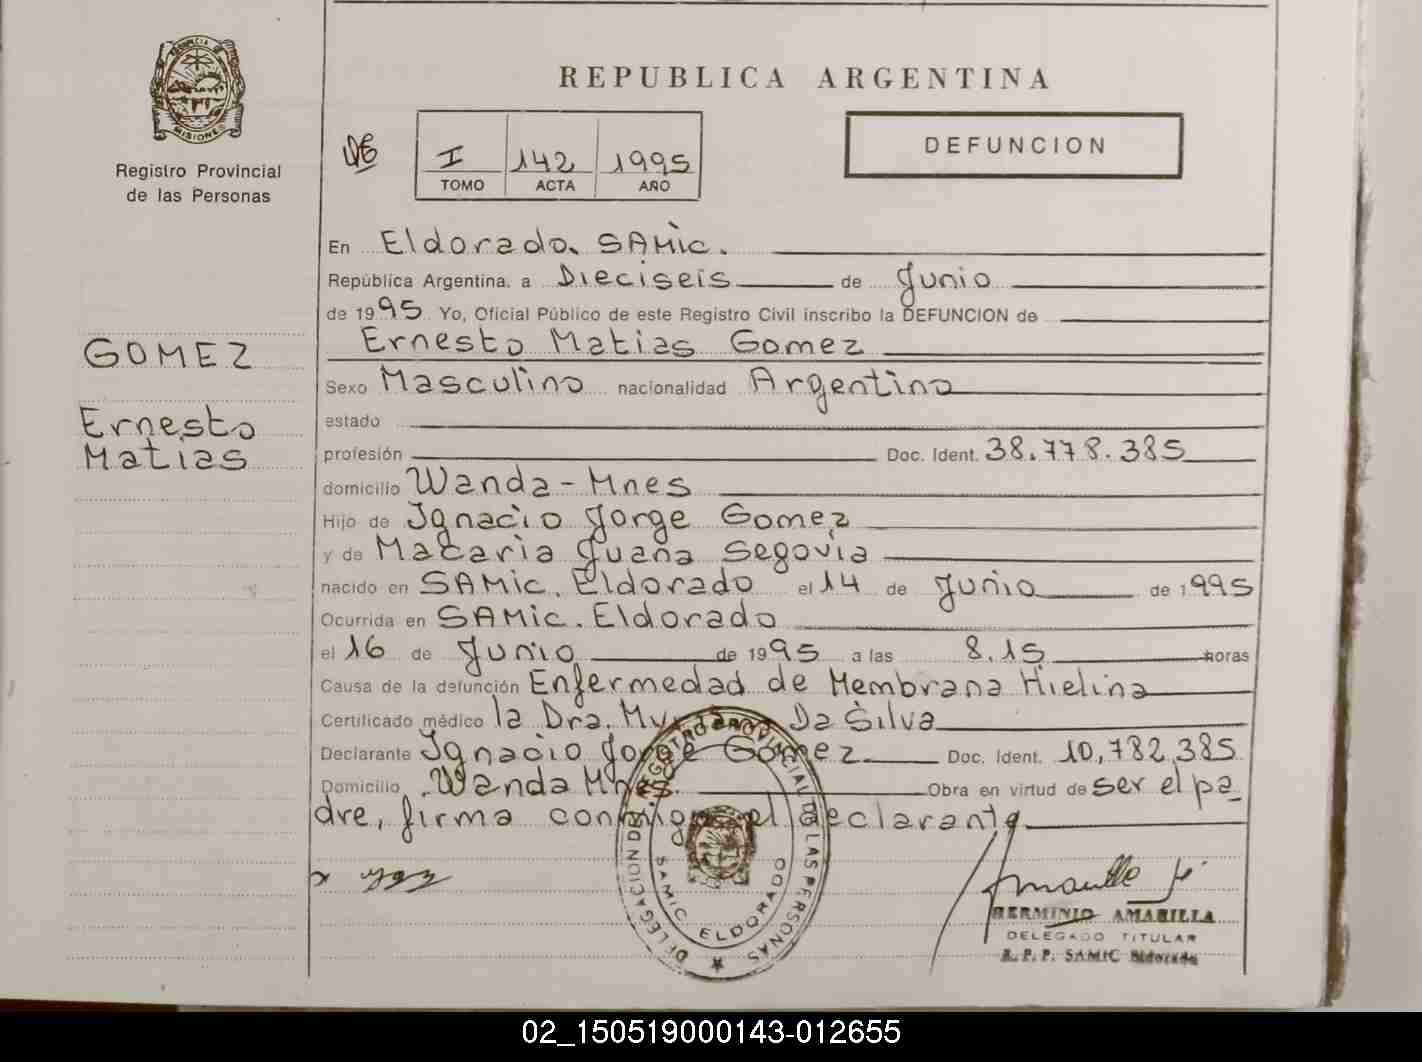 PROVINCIA DE
MISIONES
Registro Provincial
de las Personas
GOMEZ
Ernesto
Matias
REPUBLICA ARGENTINA
DE
I 142 1995
TOMO ACTA AÑO
DEFUNCION
En Eldorado, SAMic.
República Argentina, a Dieciseis de Junio
de 1995 Yo, Oficial Público de este Registro Civil inscribo la DEFUNCION de
Ernesto Matias Gomez
Sexo Masculino nacionalidad Argentina
estado
profesión Doc. Ident. 38.778.385
domicilio Wanda - Mnes
Hijo de Ignacio Jorge Gomez
y de Macaria Juana Segovia
nacido en SAMic. Eldorado el 14 de Junio de 1995
Ocurrida en SAMic. Eldorado
el 16 de Junio de 1995 a las 8.15 horas
Causa de la defunción Enfermedad de Membrana Hielina
Certificado médico la Dra. Da Silva
Declarante Ignacio Jorge Gomez Doc. Ident. 10,782,385
Domicilio Wanda Mnes. Obra en virtud de ser el pa_
dre, firma conmigo el declarante
DELEGACION DEL REGISTRO PROVINCIAL DE LAS PERSONAS
SAMIC ELDORADO
HERMINIO AMARILLA
DELEGADO TITULAR
R.P.P. SAMIC Eldorado
02_150519000143-012655